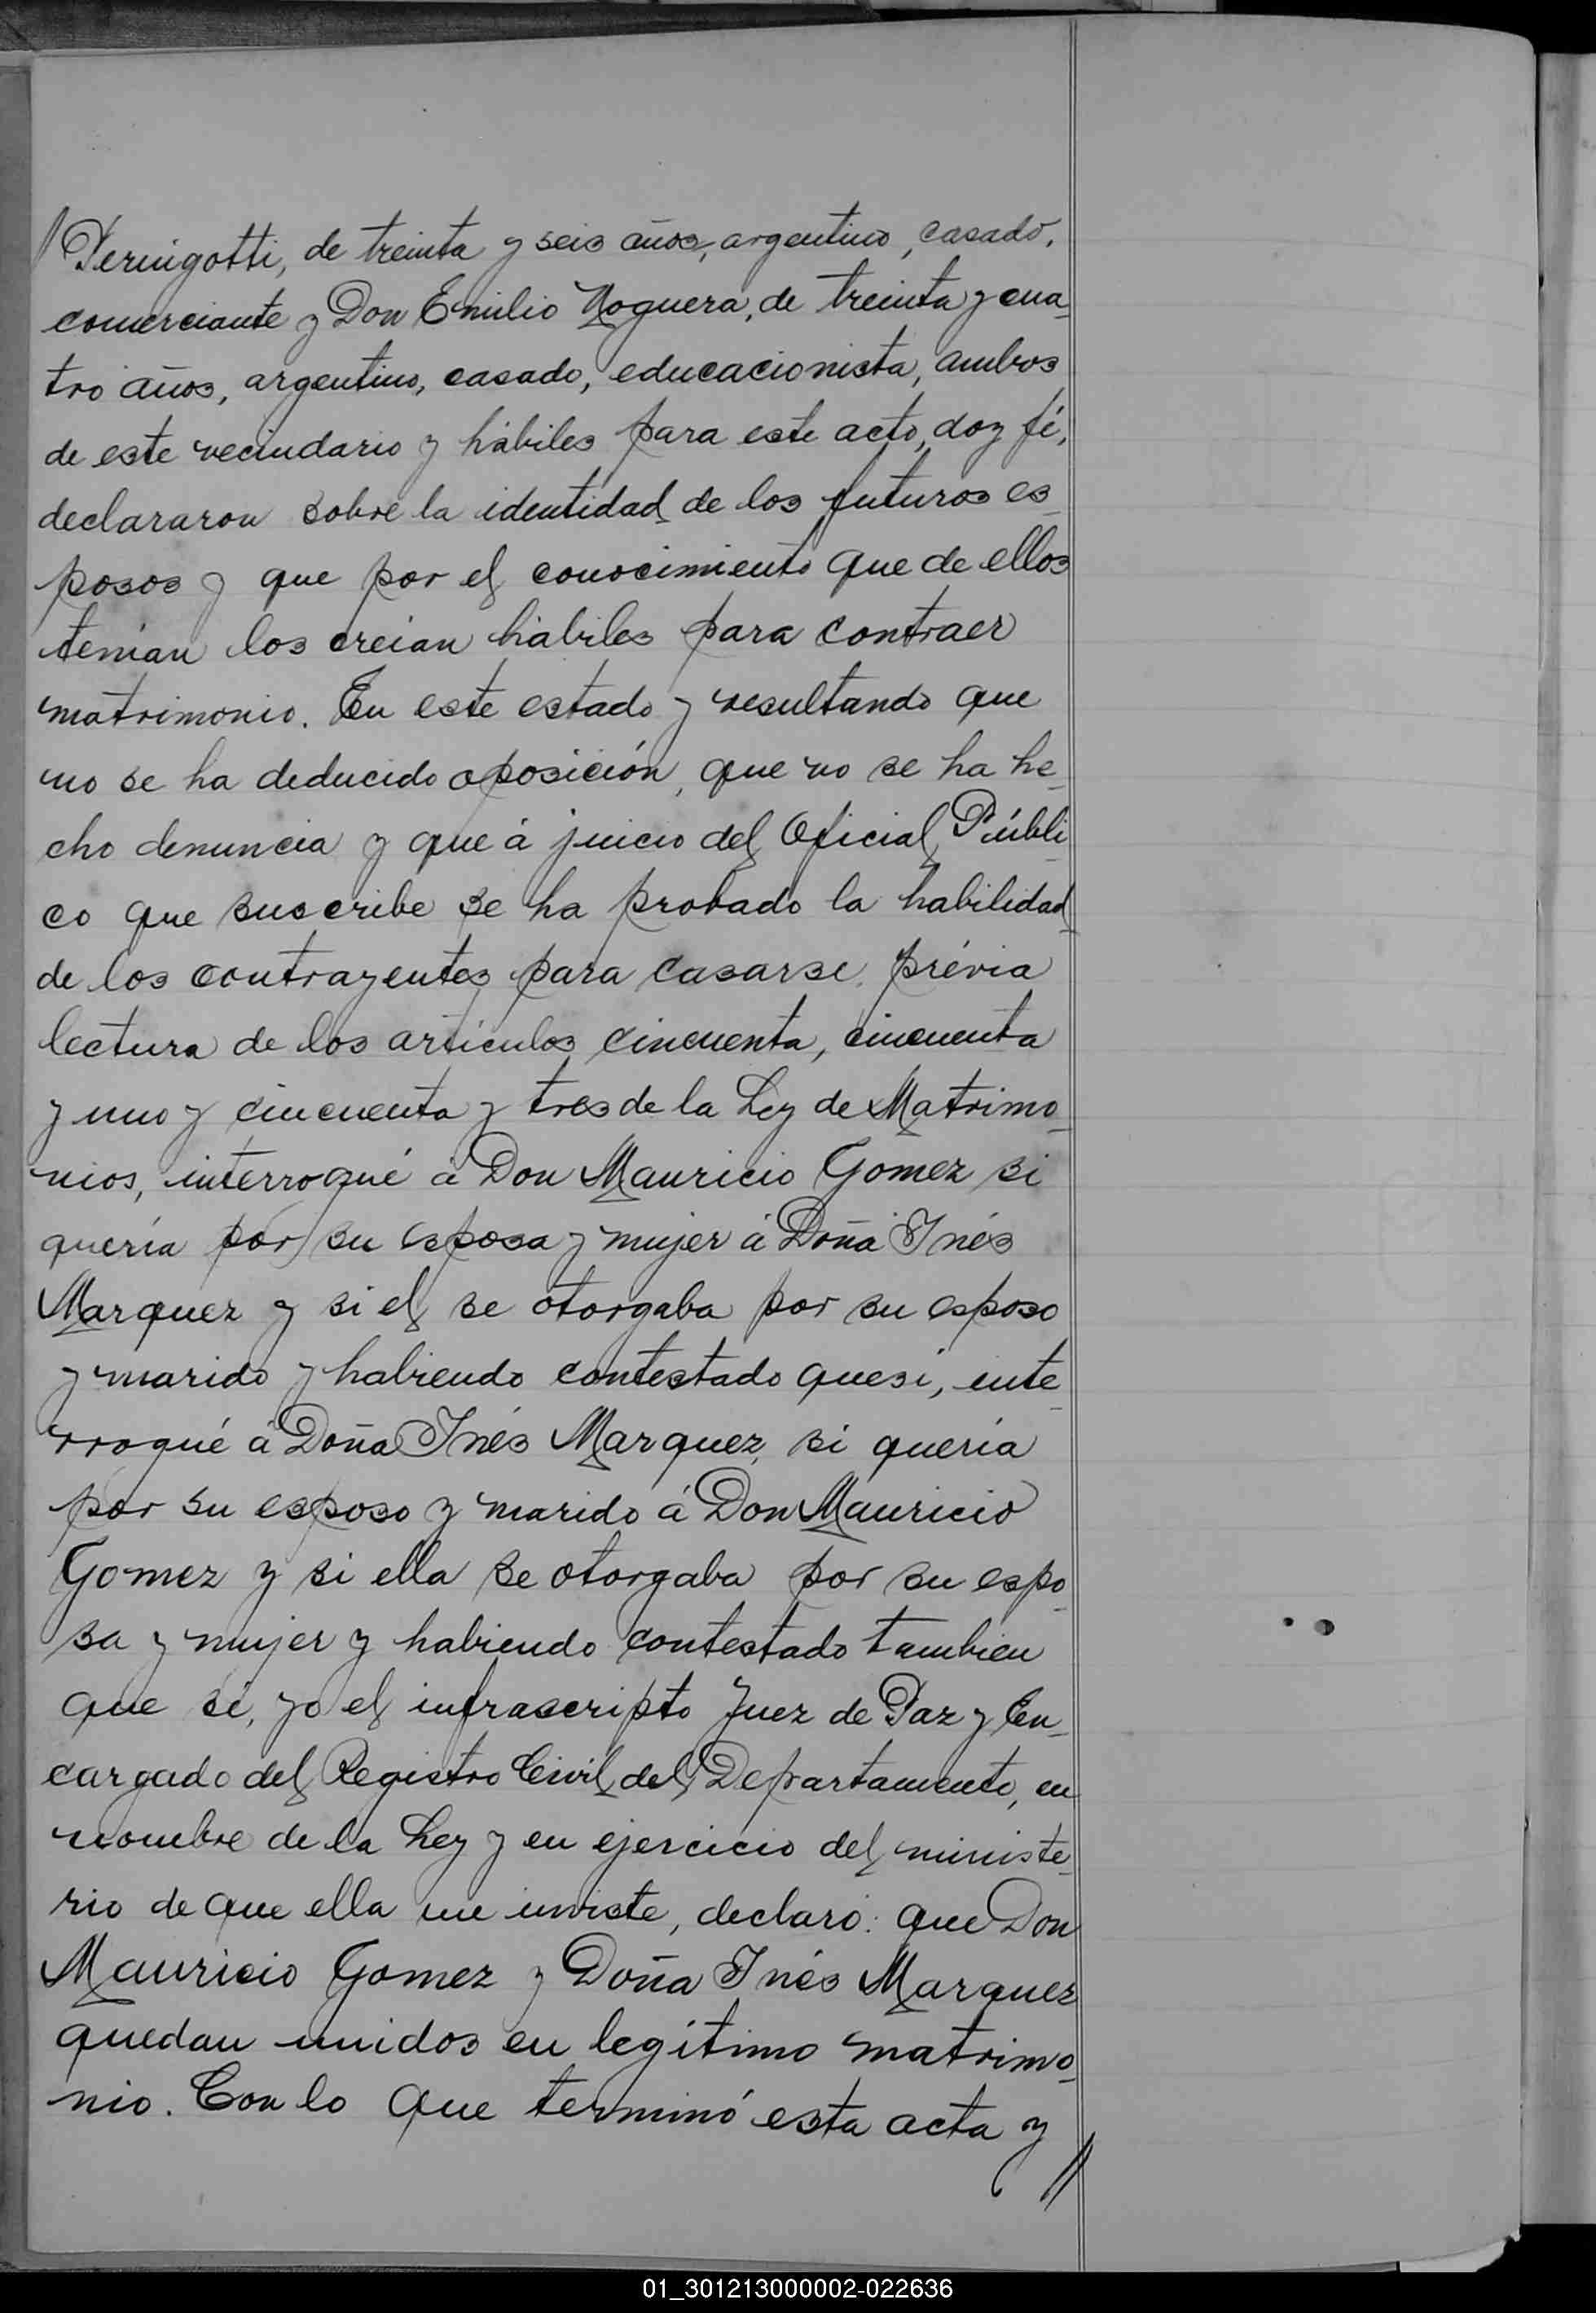 //Pernigotti, de treinta y seis años, argentino, casado,
comerciante y Don Emilio Noguera, de treinta y cua_
tro años, argentino, casado, educacionista, ambos
de este vecindario y hábiles para este acto, doy fé,
declararon sobre la identidad de los futuros es_
posos y que por el conocimiento que de ellos
tenían los creían hábiles para contraer
matrimonio. En este estado y resultando que
no se ha deducido oposición, que no se ha he_
cho denuncia y que á juicio del Oficial Públi_
co que suscribe se ha probado la habilidad
de los contrayentes para casarse, prévia
lectura de los artículos cincuenta, cincuenta
y uno y cincuenta y tres de la Ley de Matrimo_
nios, interrogué á Don Mauricio Gomez si
quería por su esposa y mujer á Doña Inés
Marquez y si el se otorgaba por su esposo
y marido y habiendo contestado que sí, inte_
rrogué á Doña Inés Marquez, si quería
por su esposo y marido á Don Mauricio
Gomez y si ella se otorgaba por su espo_
sa y mujer y habiendo contestado tambien
que sí, yo el infrascripto Juez de Paz y En_
cargado del Registro Civil del Departamento, en
nombre de la Ley y en ejercicio del ministe_
rio de que ella me inviste, declaro: que Don
Mauricio Gomez y Doña Inés Marquez
quedan unidos en legítimo matrimo_
nio. Con lo que terminó esta acta y //
01_301213000002-022636